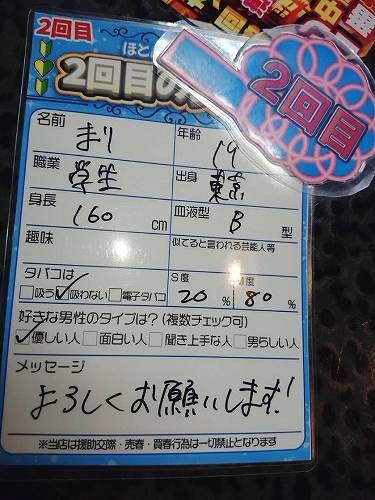 2回目
ほと
2回目の
2回目
名前
まり
年齢
19
職業
学生
出身
東京
身長
160 cm
血液型
B 型
趣味
似てると言われる芸能人等
タバコは
吸う 吸わない 電子タバコ
S度
20 %
M度
80 %
好きな男性のタイプは?(複数チェック可)
優しい人 面白い人 聞き上手な人 男らしい人
メッセージ
よろしくお願いします!
※当店は援助交際・売春・買春行為は一切禁止となります